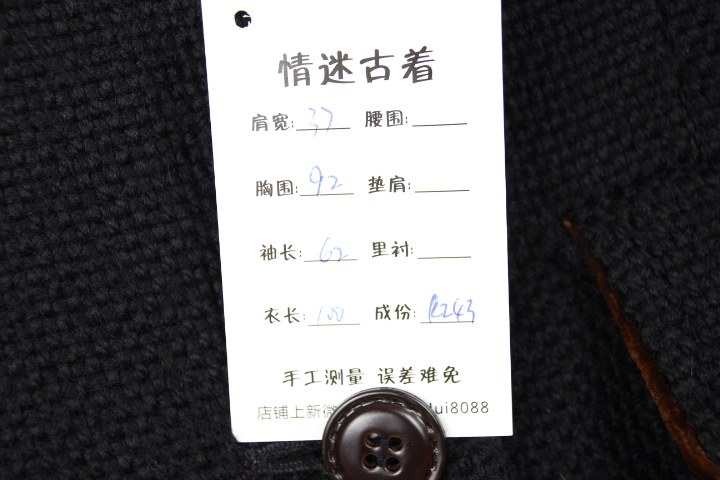 情迷古着
肩宽: 37 腰围:
胸围: 92 垫肩:
袖长: 62 里衬:
衣长: 100 成份: R243
手工测量 误差难免
店铺上新微 ui8088